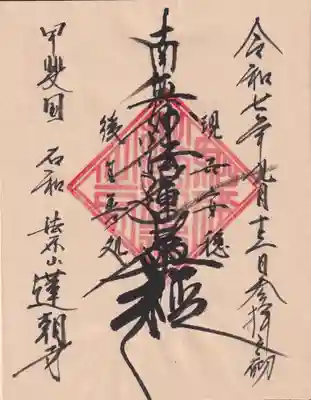 令和七年九月十三日参拝之砌
現世安穏
南無妙法蓮華経
後生善処
甲斐国 石和 法木山 蓮朝寺